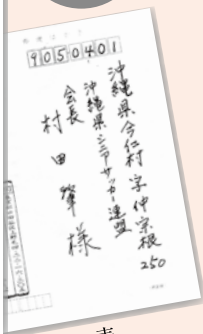 郵便はがき
9050401
沖縄県今仁村字仲宗根
250
沖縄県シニアサッカー連盟
会長
村田肇様
表